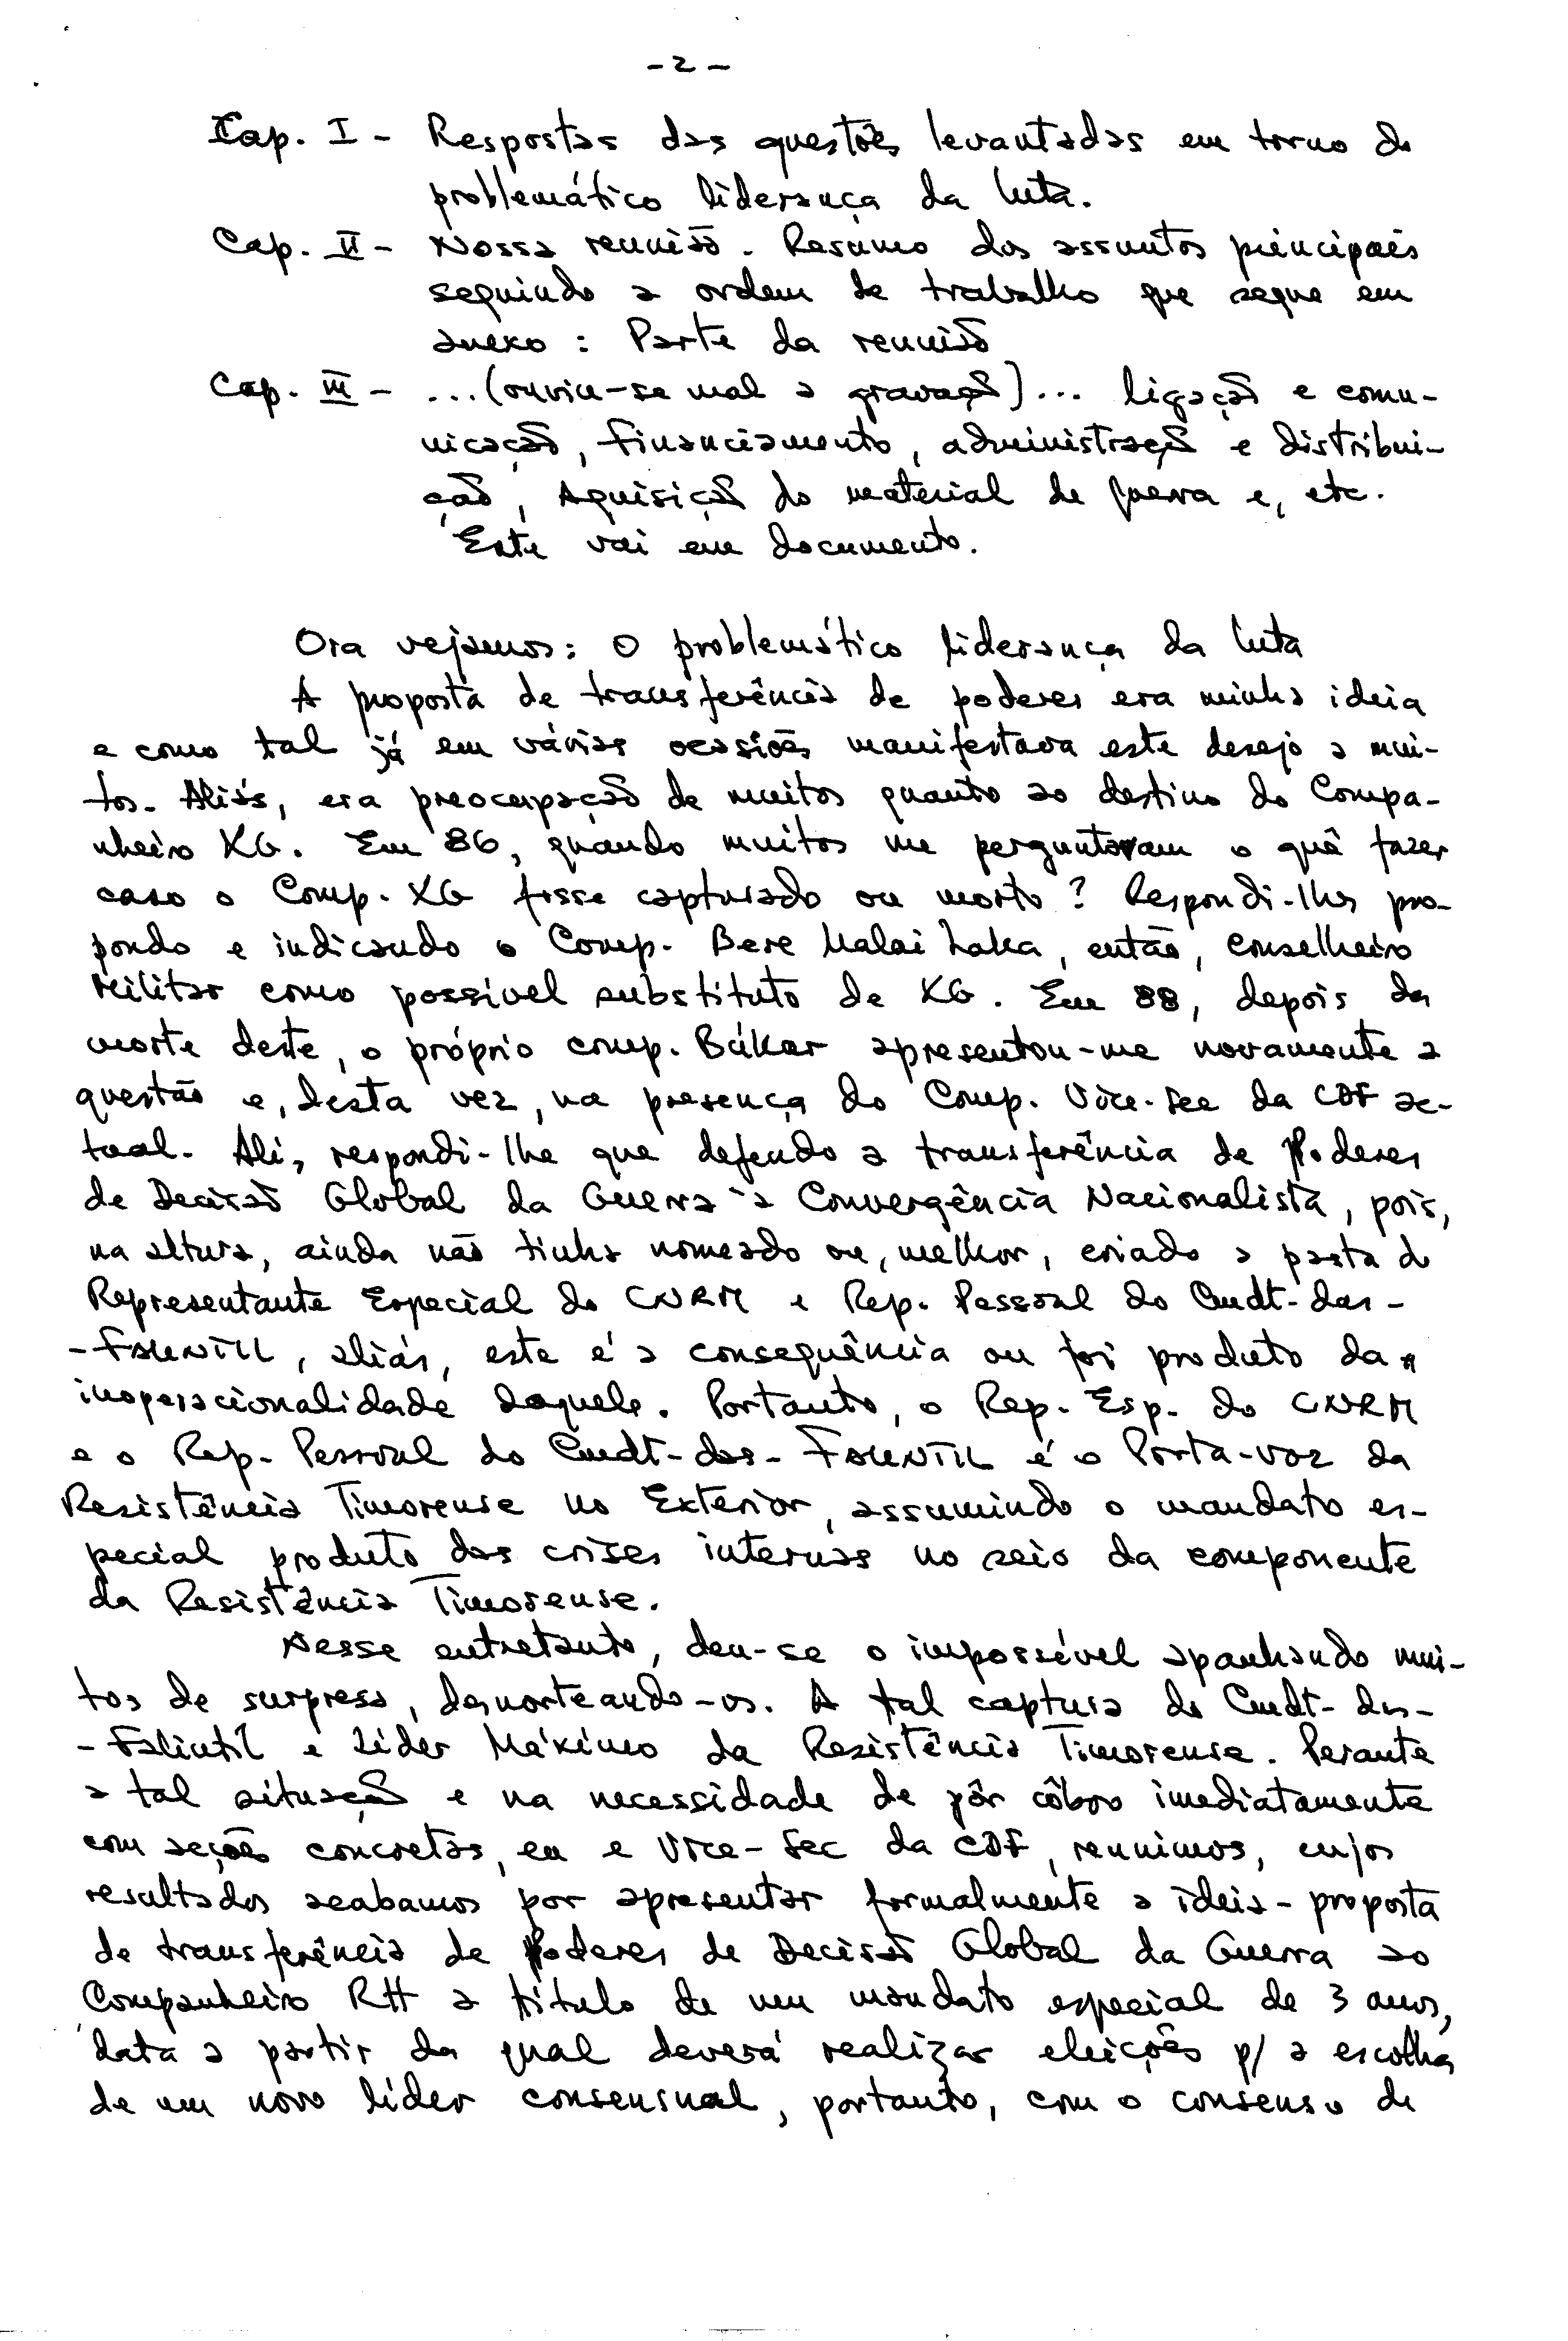 - 2 -
Cap. I - Respostas das questões levantadas em torno do
problemático liderança da luta.
Cap. II - Nossa reunião. Resumo dos assuntos principais
seguindo a ordem de trabalho que segue em
anexo : Parte da reunião
Cap. III - ... (ouviu-se mal a gravação) ... ligação e comu-
nicação, financiamento, administração e distribui-
ção, Aquisição do material de guerra e, etc.
Este vai em documento.
Ora vejamos: O problemático liderança da luta
A proposta de transferência de poderes era minha ideia
e como tal já em várias ocasiões manifestava este desejo a mui-
tos. Aliás, era preocupação de muitos quanto ao destino do Compa-
nheiro XG. Em 86, quando muitos me perguntavam o quê fazer
caso o Comp. XG fosse capturado ou morto? Respondi-lhes pro-
pondo e indicando o Comp. Bere Malai Laka, então, conselheiro
Militar como possível substituto de XG. Em 88, depois da
morte deste, o próprio comp. Búkar apresentou-me novamente a
questão e, desta vez, na presença do Comp. Vice-Sec da CDF ac-
tual. Ali, respondi-lhe que defendo a transferência de Poderes
de Decisão Global da Guerra à Convergência Nacionalista, pois,
na altura, ainda não tinha nomeado ou, melhor, criado a pasta do
Representante Especial do CNRM e Rep. Pessoal do Cmdt-das-
-FALINTIL, aliás, este é a consequência ou foi produto da
inoperacionalidade daquele. Portanto, o Rep. Esp. do CNRM
e o Rep. Pessoal do Cmdt-das-FALINTIL é o Porta-voz da
Resistência Timorense no Exterior, assumindo o mandato es-
pecial produto das crises internas no seio da componente
da Resistência Timorense.
Nesse entretanto, deu-se o impossível apanhando mui-
tos de surpresa, desnorteando-os. A tal captura do Cmdt-das-
-Falintil e Líder Máximo da Resistência Timorense. Perante
a tal situação e na necessidade de pôr côbro imediatamente
com acções concretas, eu e Vice-Sec da CDF, reunimos, cujos
resultados acabamos por apresentar formalmente a ideia-proposta
de transferência de Poderes de Decisão Global da Guerra ao
Companheiro RH a título de um mandato especial de 3 anos,
data a partir da qual deverá realizar eleições p/ a escolha
de um novo líder consensual, portanto, com o consenso de